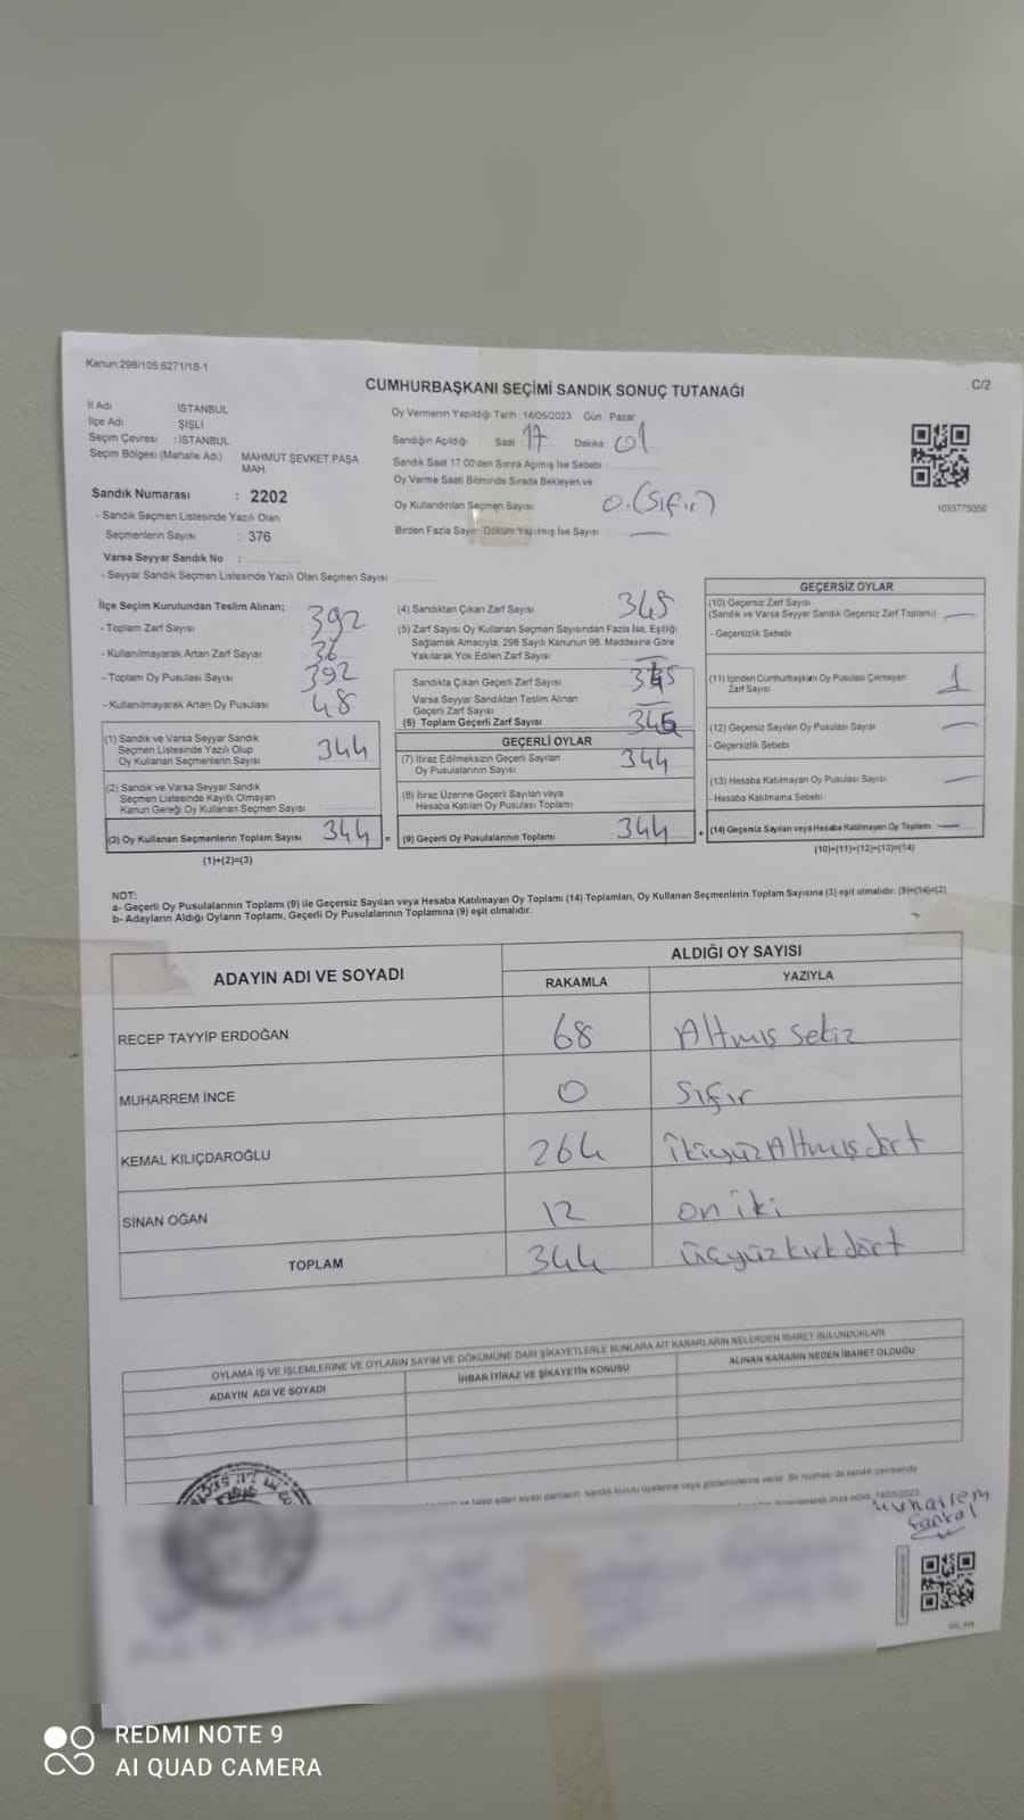 Kanun:298/105 6271/18-1
C/2
CUMHURBAŞKANI SEÇİMİ SANDIK SONUÇ TUTANAĞI
İl Adı İSTANBUL
İlçe Adı ŞİŞLİ
Seçim Çevresi : İSTANBUL
Seçim Bölgesi (Mahalle Adı) MAHMUT ŞEVKET PAŞA MAH.
Sandık Numarası : 2202
- Sandık Seçmen Listesinde Yazılı Olan
Seçmenlerin Sayısı : 376
Varsa Seyyar Sandık No :
- Seyyar Sandık Seçmen Listesinde Yazılı Olan Seçmen Sayısı
Oy Vermenin Yapıldığı Tarih 14/05/2023 Gün Pazar
Sandığın Açıldığı Saat 17 Dakika 01
Sandık Saat 17.00'den Sonra Açılmış İse Sebebi
Oy Verme Saati Bitiminde Sırada Bekleyen ve
Oy Kullandırılan Seçmen Sayısı 0.(Sıfır)
Birden Fazla Sayım Döküm Yapılmış İse Sayısı —
İlçe Seçim Kurulundan Teslim Alınan;
- Toplam Zarf Sayısı 392
- Kullanılmayarak Artan Zarf Sayısı 36
- Toplam Oy Pusulası Sayısı 392
- Kullanılmayarak Artan Oy Pusulası 48
(1) Sandık ve Varsa Seyyar Sandık
Seçmen Listesinde Yazılı Olup
Oy Kullanan Seçmenlerin Sayısı 344
(2) Sandık ve Varsa Seyyar Sandık
Seçmen Listesinde Kayıtlı Olmayan
Kanun Gereği Oy Kullanan Seçmen Sayısı
(3) Oy Kullanan Seçmenlerin Toplam Sayısı 344 =
(1)+(2)=(3)
(4) Sandıktan Çıkan Zarf Sayısı 345
(5) Zarf Sayısı Oy Kullanan Seçmen Sayısından Fazla İse, Eşitliği
Sağlamak Amacıyla, 298 Sayılı Kanunun 98. Maddesine Göre
Yakılarak Yok Edilen Zarf Sayısı —
Sandıkta Çıkan Geçerli Zarf Sayısı 345
Varsa Seyyar Sandıktan Teslim Alınan
Geçerli Zarf Sayısı —
(6) Toplam Geçerli Zarf Sayısı 345
GEÇERLİ OYLAR
(7) İtiraz Edilmeksizin Geçerli Sayılan
Oy Pusulalarının Sayısı 344
(8) İtiraz Üzerine Geçerli Sayılan veya
Hesaba Katılan Oy Pusulası Toplamı
(9) Geçerli Oy Pusulalarının Toplamı 344 +
1033775050
GEÇERSİZ OYLAR
(10) Geçersiz Zarf Sayısı
(Sandık ve Varsa Seyyar Sandık Geçersiz Zarf Toplamı) —
- Geçersizlik Sebebi
(11) İçinden Cumhurbaşkanı Oy Pusulası Çıkmayan
Zarf Sayısı 1
(12) Geçersiz Sayılan Oy Pusulası Sayısı —
- Geçersizlik Sebebi
(13) Hesaba Katılmayan Oy Pusulası Sayısı —
- Hesaba Katılmama Sebebi
(14) Geçersiz Sayılan veya Hesaba Katılmayan Oy Toplamı —
(10)+(11)+(12)+(13)=(14)
NOT:
a- Geçerli Oy Pusulalarının Toplamı (9) ile Geçersiz Sayılan veya Hesaba Katılmayan Oy Toplamı (14) Toplamları, Oy Kullanan Seçmenlerin Toplam Sayısına (3) eşit olmalıdır.
b- Adayların Aldığı Oyların Toplamı, Geçerli Oy Pusulalarının Toplamına (9) eşit olmalıdır.
ADAYIN ADI VE SOYADI ALDIĞI OY SAYISI
RAKAMLA YAZIYLA
RECEP TAYYİP ERDOĞAN 68 Altmış sekiz
MUHARREM İNCE 0 Sıfır
KEMAL KILIÇDAROĞLU 264 ikiyüzAltmışdört
SİNAN OĞAN 12 on iki
TOPLAM 344 üçyüzkırkdört
OYLAMA İŞ VE İŞLEMLERİNE VE OYLARIN SAYIM VE DÖKÜMÜNE DAİR ŞİKAYETLERLE BUNLARA AİT KARARLARIN NELERDEN İBARET BULUNDUKLARI
ADAYIN ADI VE SOYADI İHBAR İTİRAZ VE ŞİKAYETİN KONUSU ALINAN KARARIN NEDEN İBARET OLDUĞU
REDMI NOTE 9
AI QUAD CAMERA